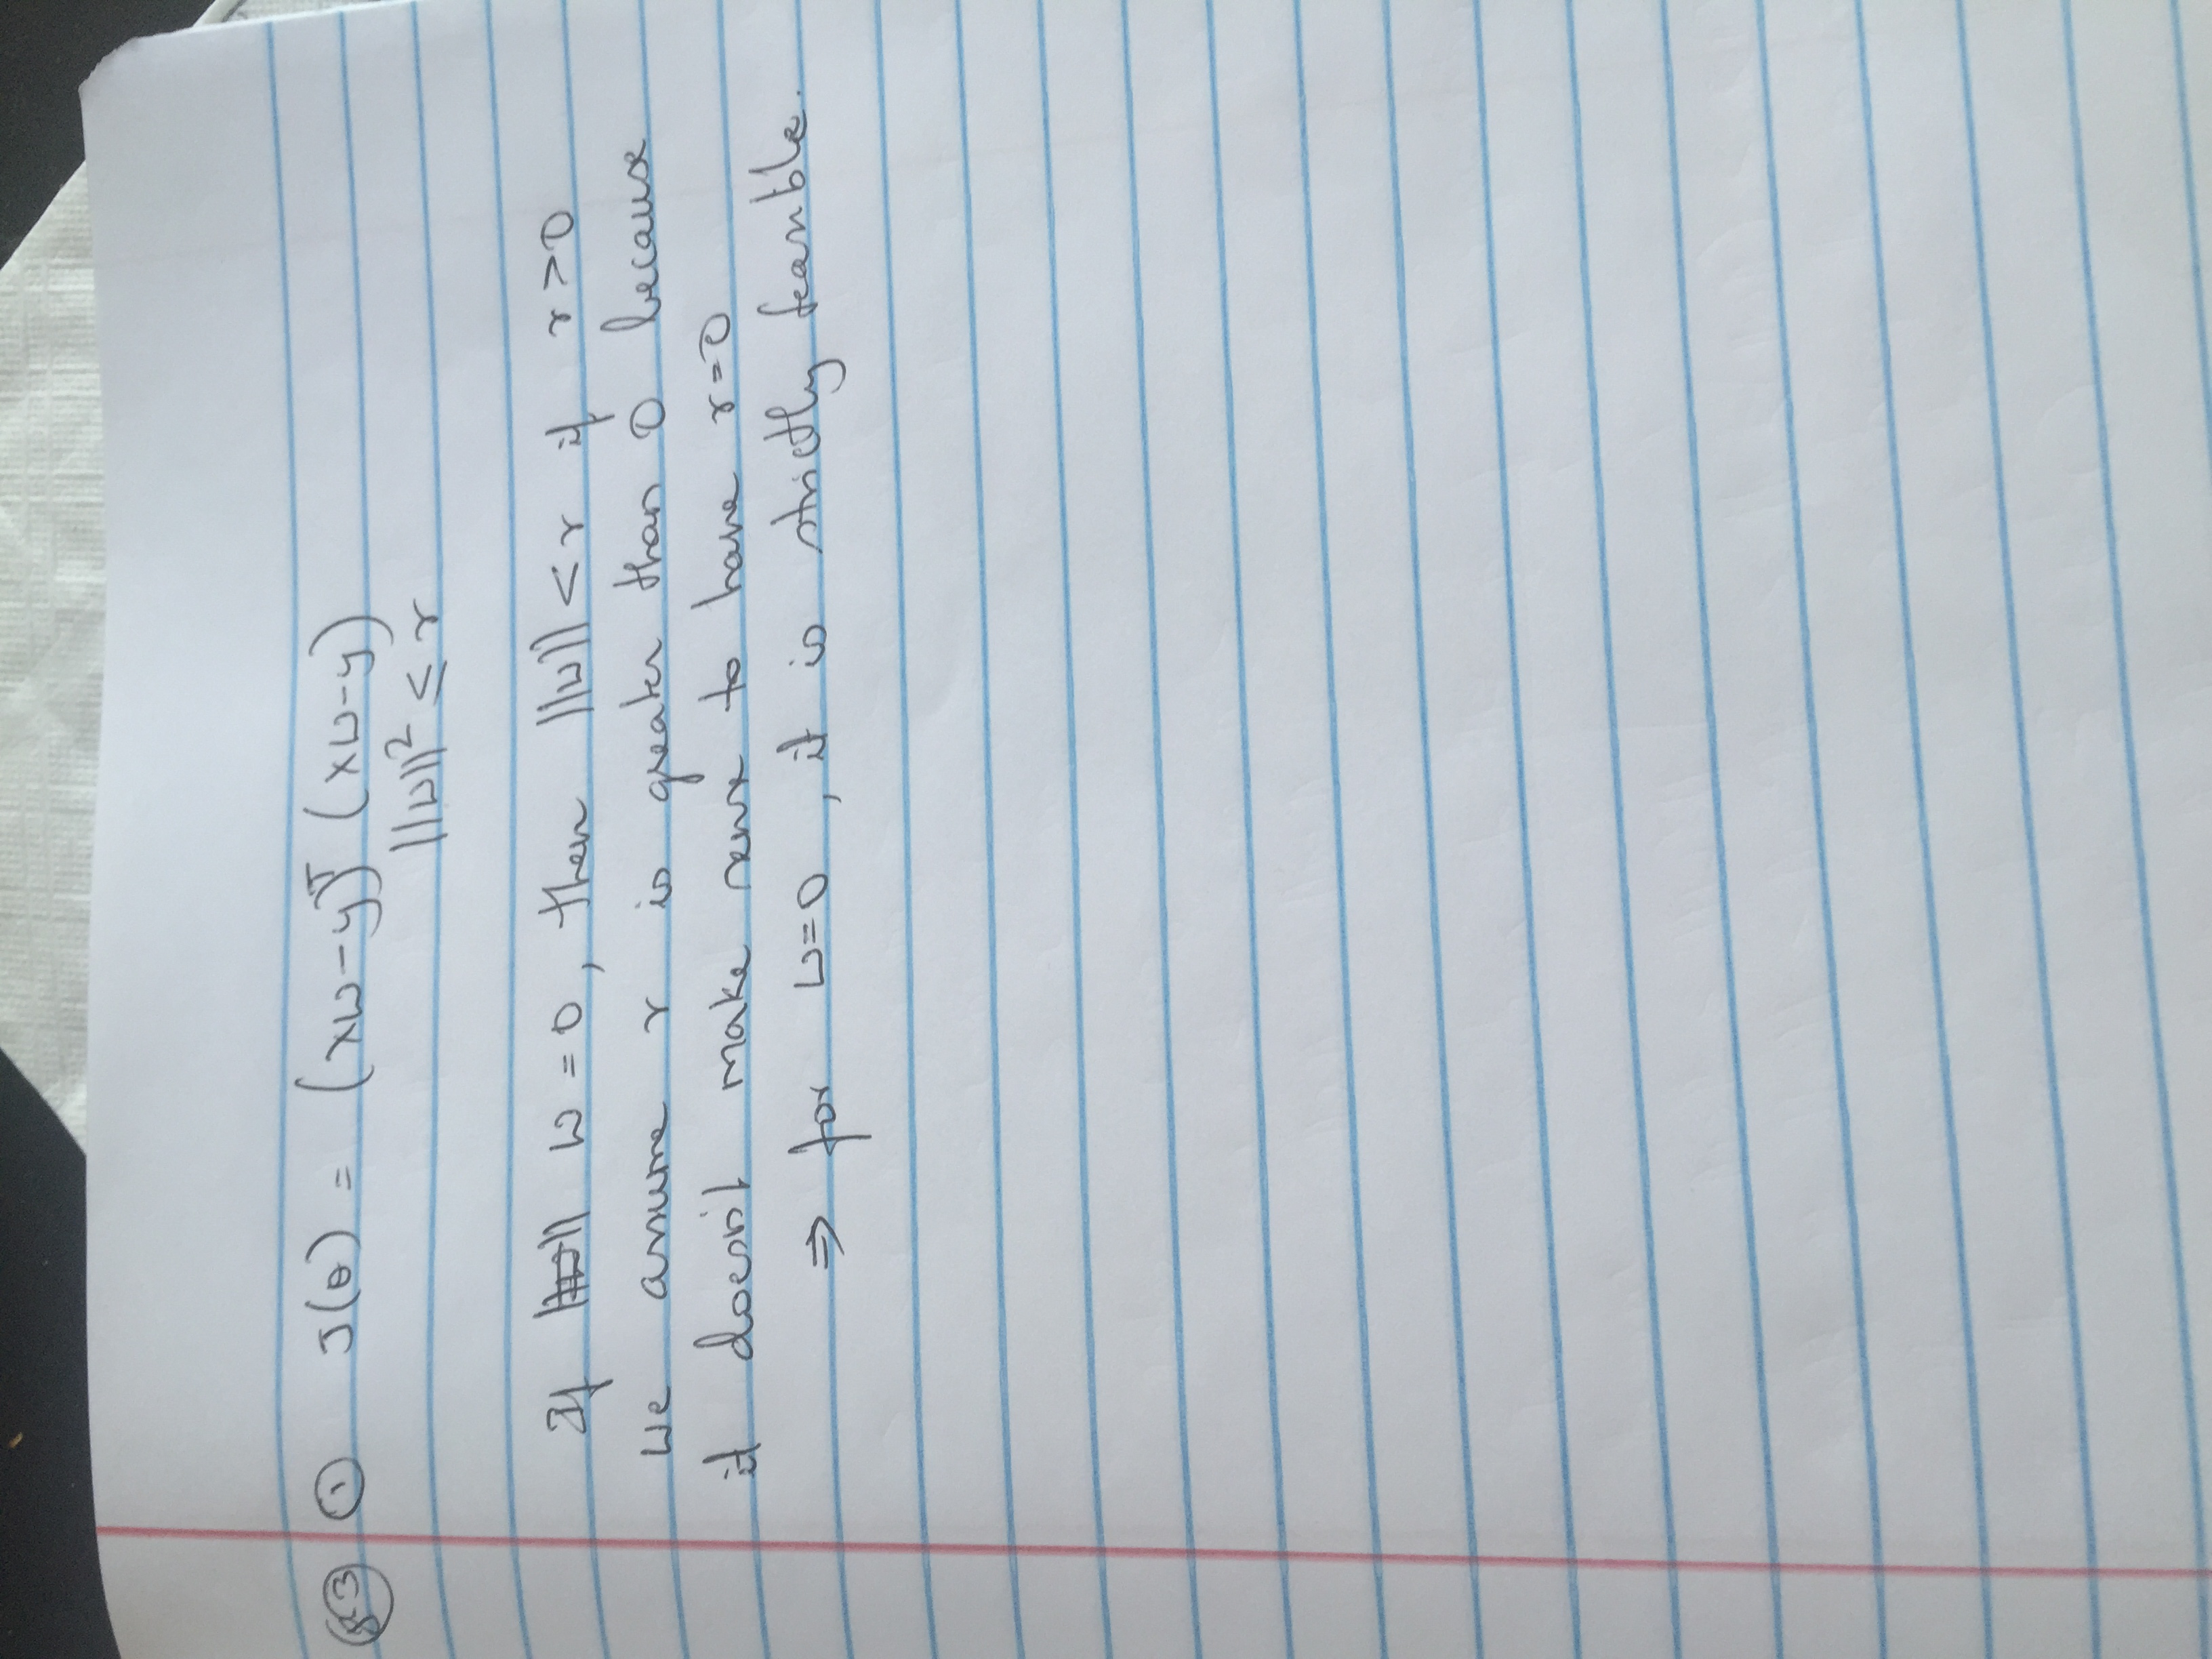 3 ① J(θ) = (xω-y)ᵀ (xω-y)
||ω||² ≤ r
If ω = 0, then ||ω|| < r if r > 0
We assume r is greater than 0 because
it doesn't make sense to have r=0
⇒ for ω=0, it is strictly feasible.